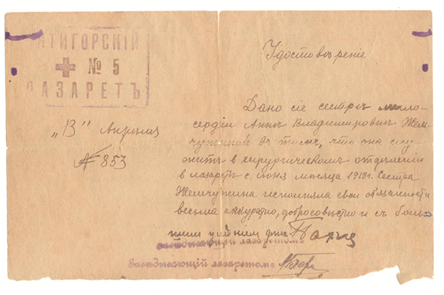 ПЯТИГОРСКІЙ
№ 5
ЛАЗАРЕТЪ
"13" Апрѣля
№ 853
Удостовѣреніе
Дано сіе сестрѣ мило-
сердія Аннѣ Владиміровнѣ Жем-
чужиной въ томъ, что она слу-
житъ въ хирургическомъ отдѣленіи
лазарета съ мѣсяца Сестра
Жемчужина исполняла свои обязанности
весьма аккуратно, добросовѣстно и съ боль-
шимъ
завѣдывающій лазаретомъ
Завѣдывающій лазаретомъ